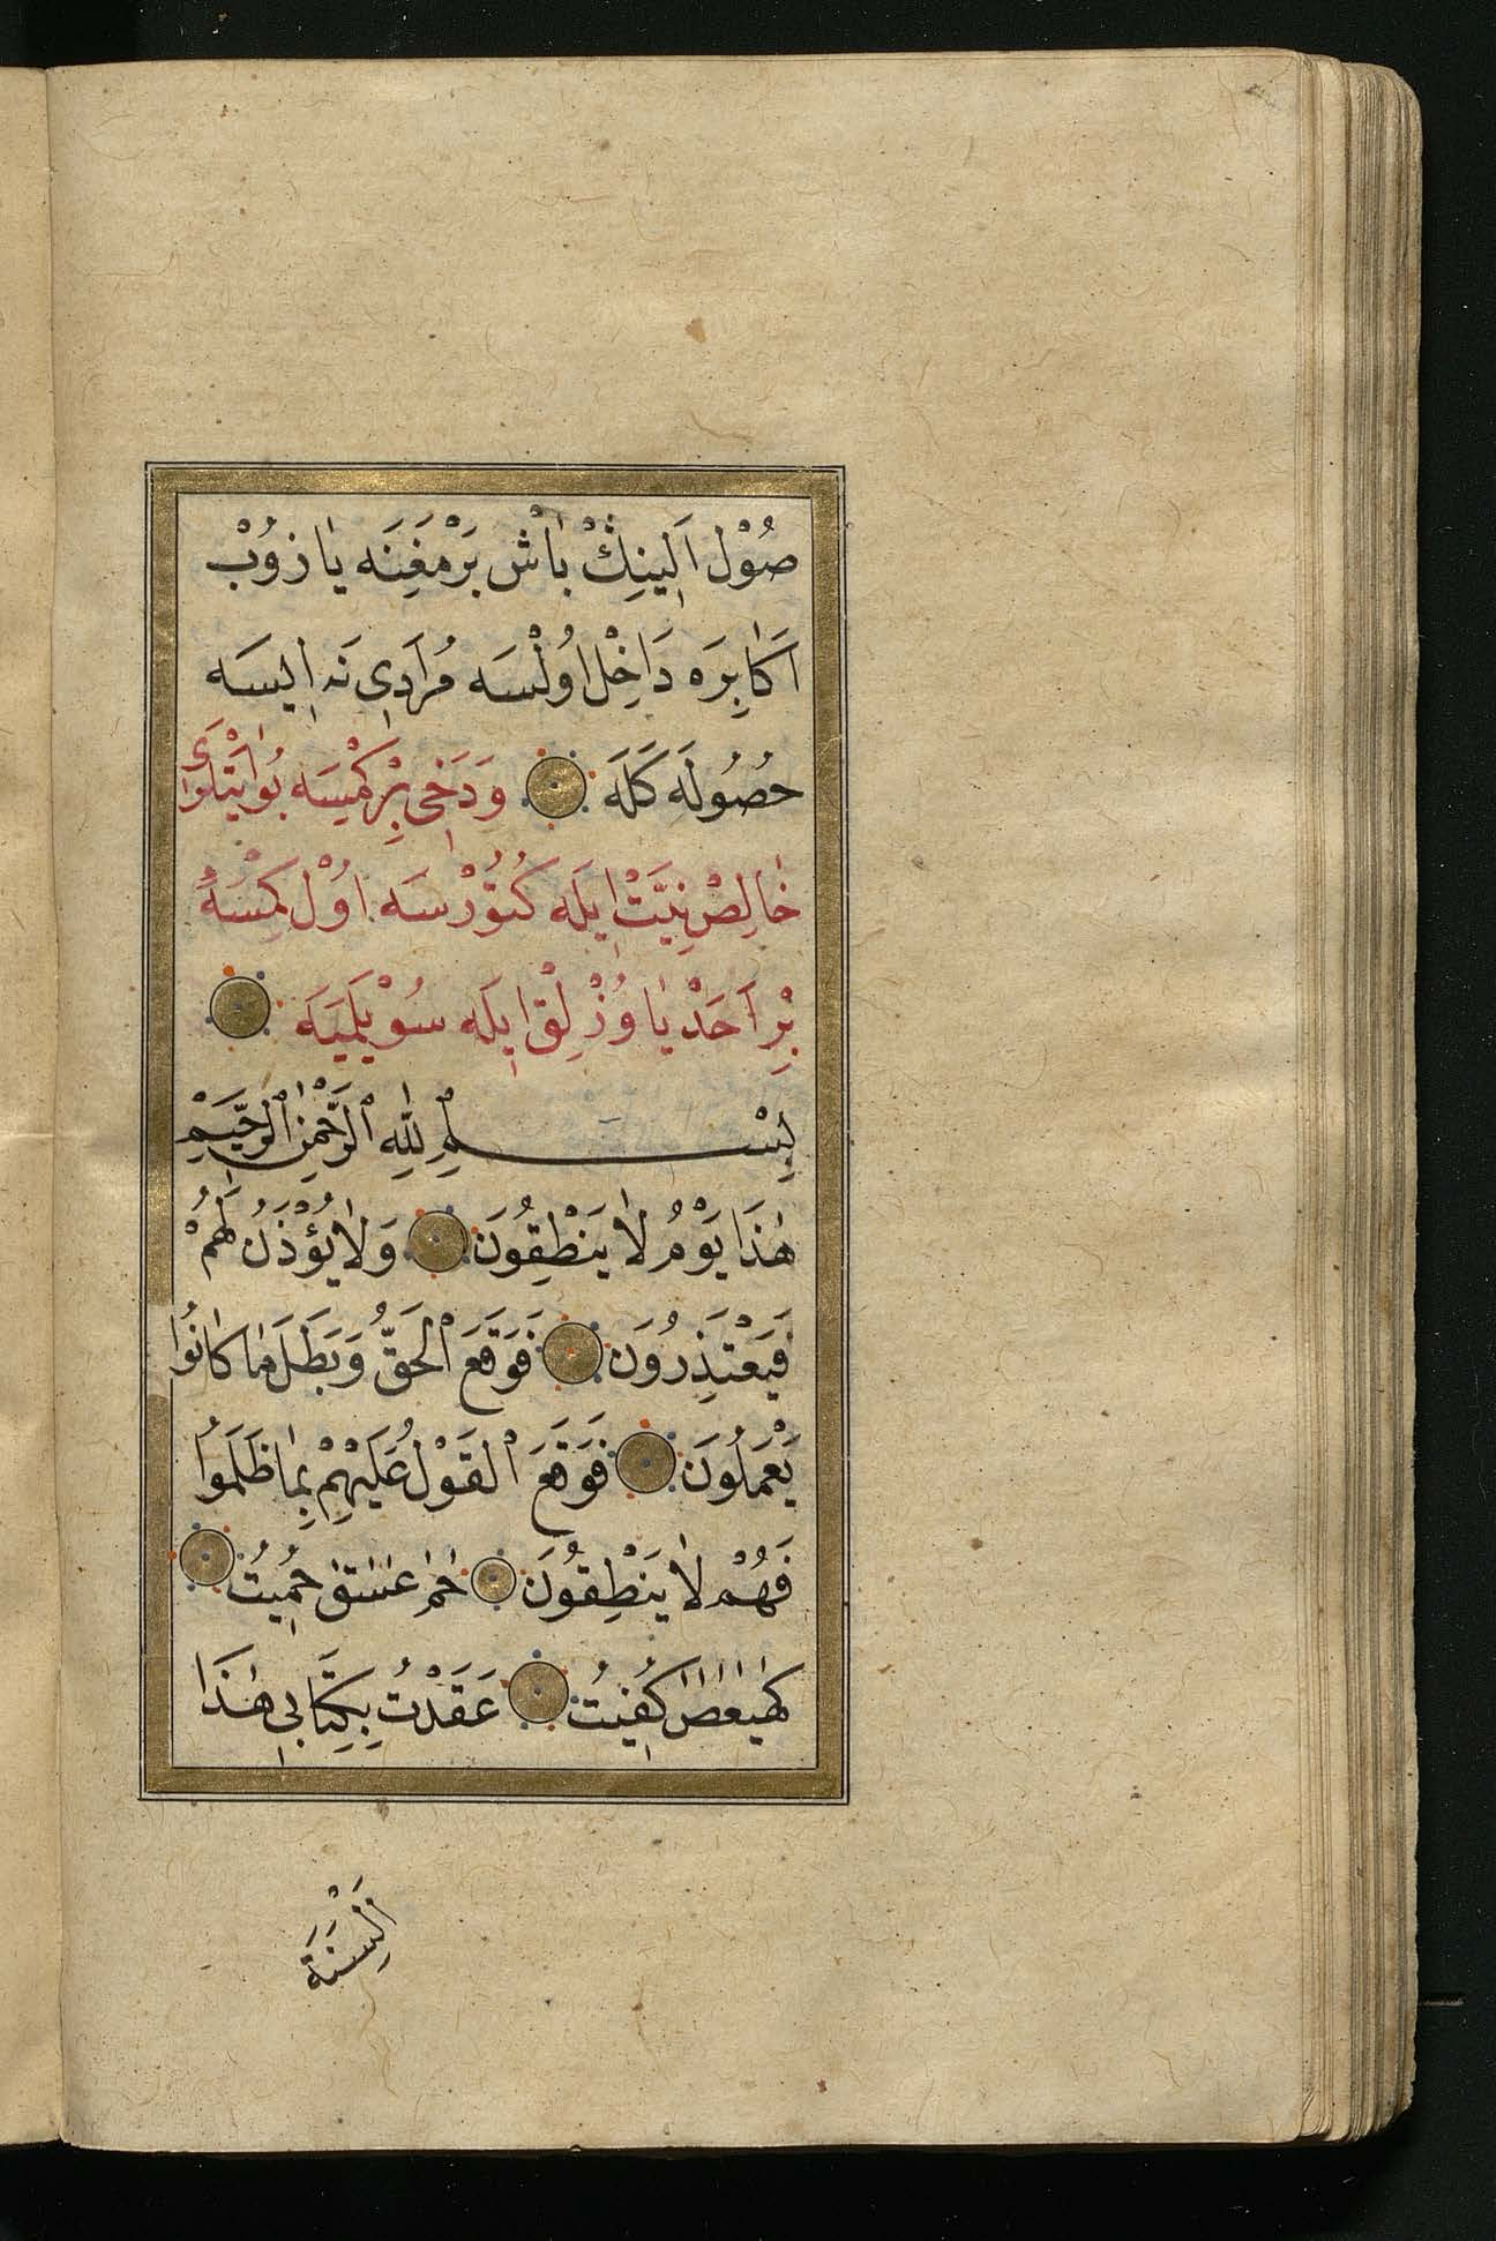 صُوْل اَلِينِڭْ بَاشْ بَرْمَغِنَه يَازُوبْ
اَكَابِرَه دَاخِلْ اُولْسَه مُرَادِى نَه اِيسَه
حُصُولَه كَلَه وَدَخِى بِرْ كِمْسَه بُو اٰيَتْلَرى
خَالِصْ نِيَّتْ اِيلَه كُتُورْسَه اُوْل كِمْسَهْ
بِرْ اَحَدْ يَاوُزْ لِقْ اِيلَه سُوْيلَمِيَه
بِسْمِ اللّٰهِ الرَّحْمٰنِ الرَّحِيمِ
هٰذَا يَوْمُ لَا يَنْطِقُونَ وَلَا يُؤْذَنُ لَهُمْ
فَيَعْتَذِرُونَ فَوَقَعَ الْحَقُّ وَبَطَلَ مَا كَانُوا
يَعْمَلُونَ فَوَقَعَ الْقَوْلُ عَلَيْهِمْ بِمَا ظَلَمُوا
فَهُمْ لَا يَنْطِقُونَ حٰمٓ عٓسٓقٓ حُمِيتُ
كٓهٰيٰعٓصٓ كُفِيتُ عَقَدْتُ بِكِتَابِى هٰذَا
اَلْسِنَةَ